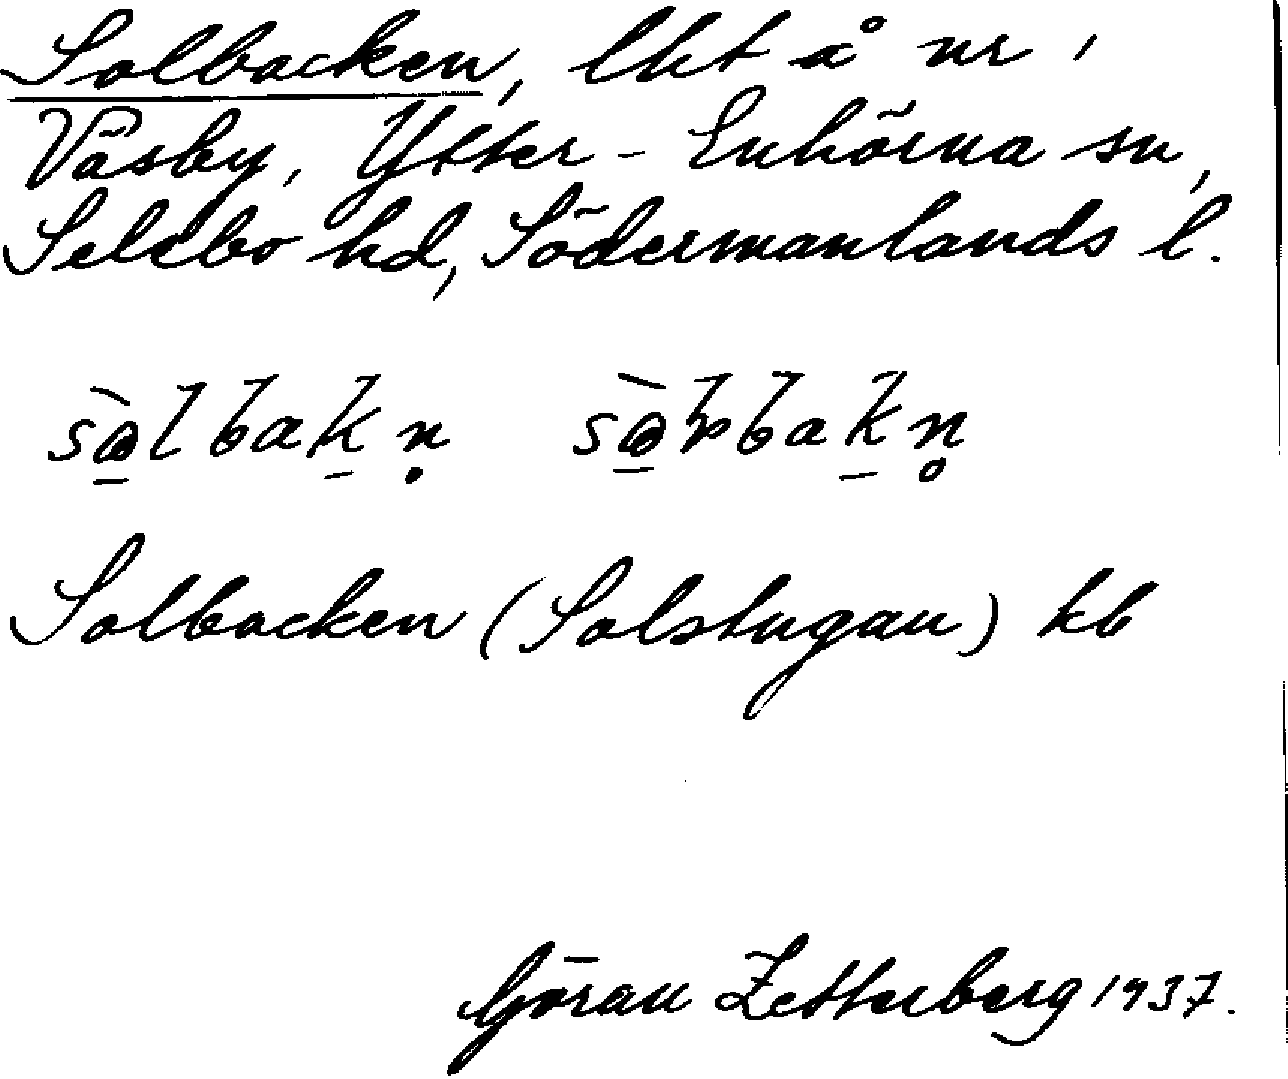 Solbacken, lht å nr 1
Väsby, Ytter-Enhörna sn,
Selebo hd, Södermanlands l.
Solbacken (Solstugan) kb
Göran Zetterberg 1937.